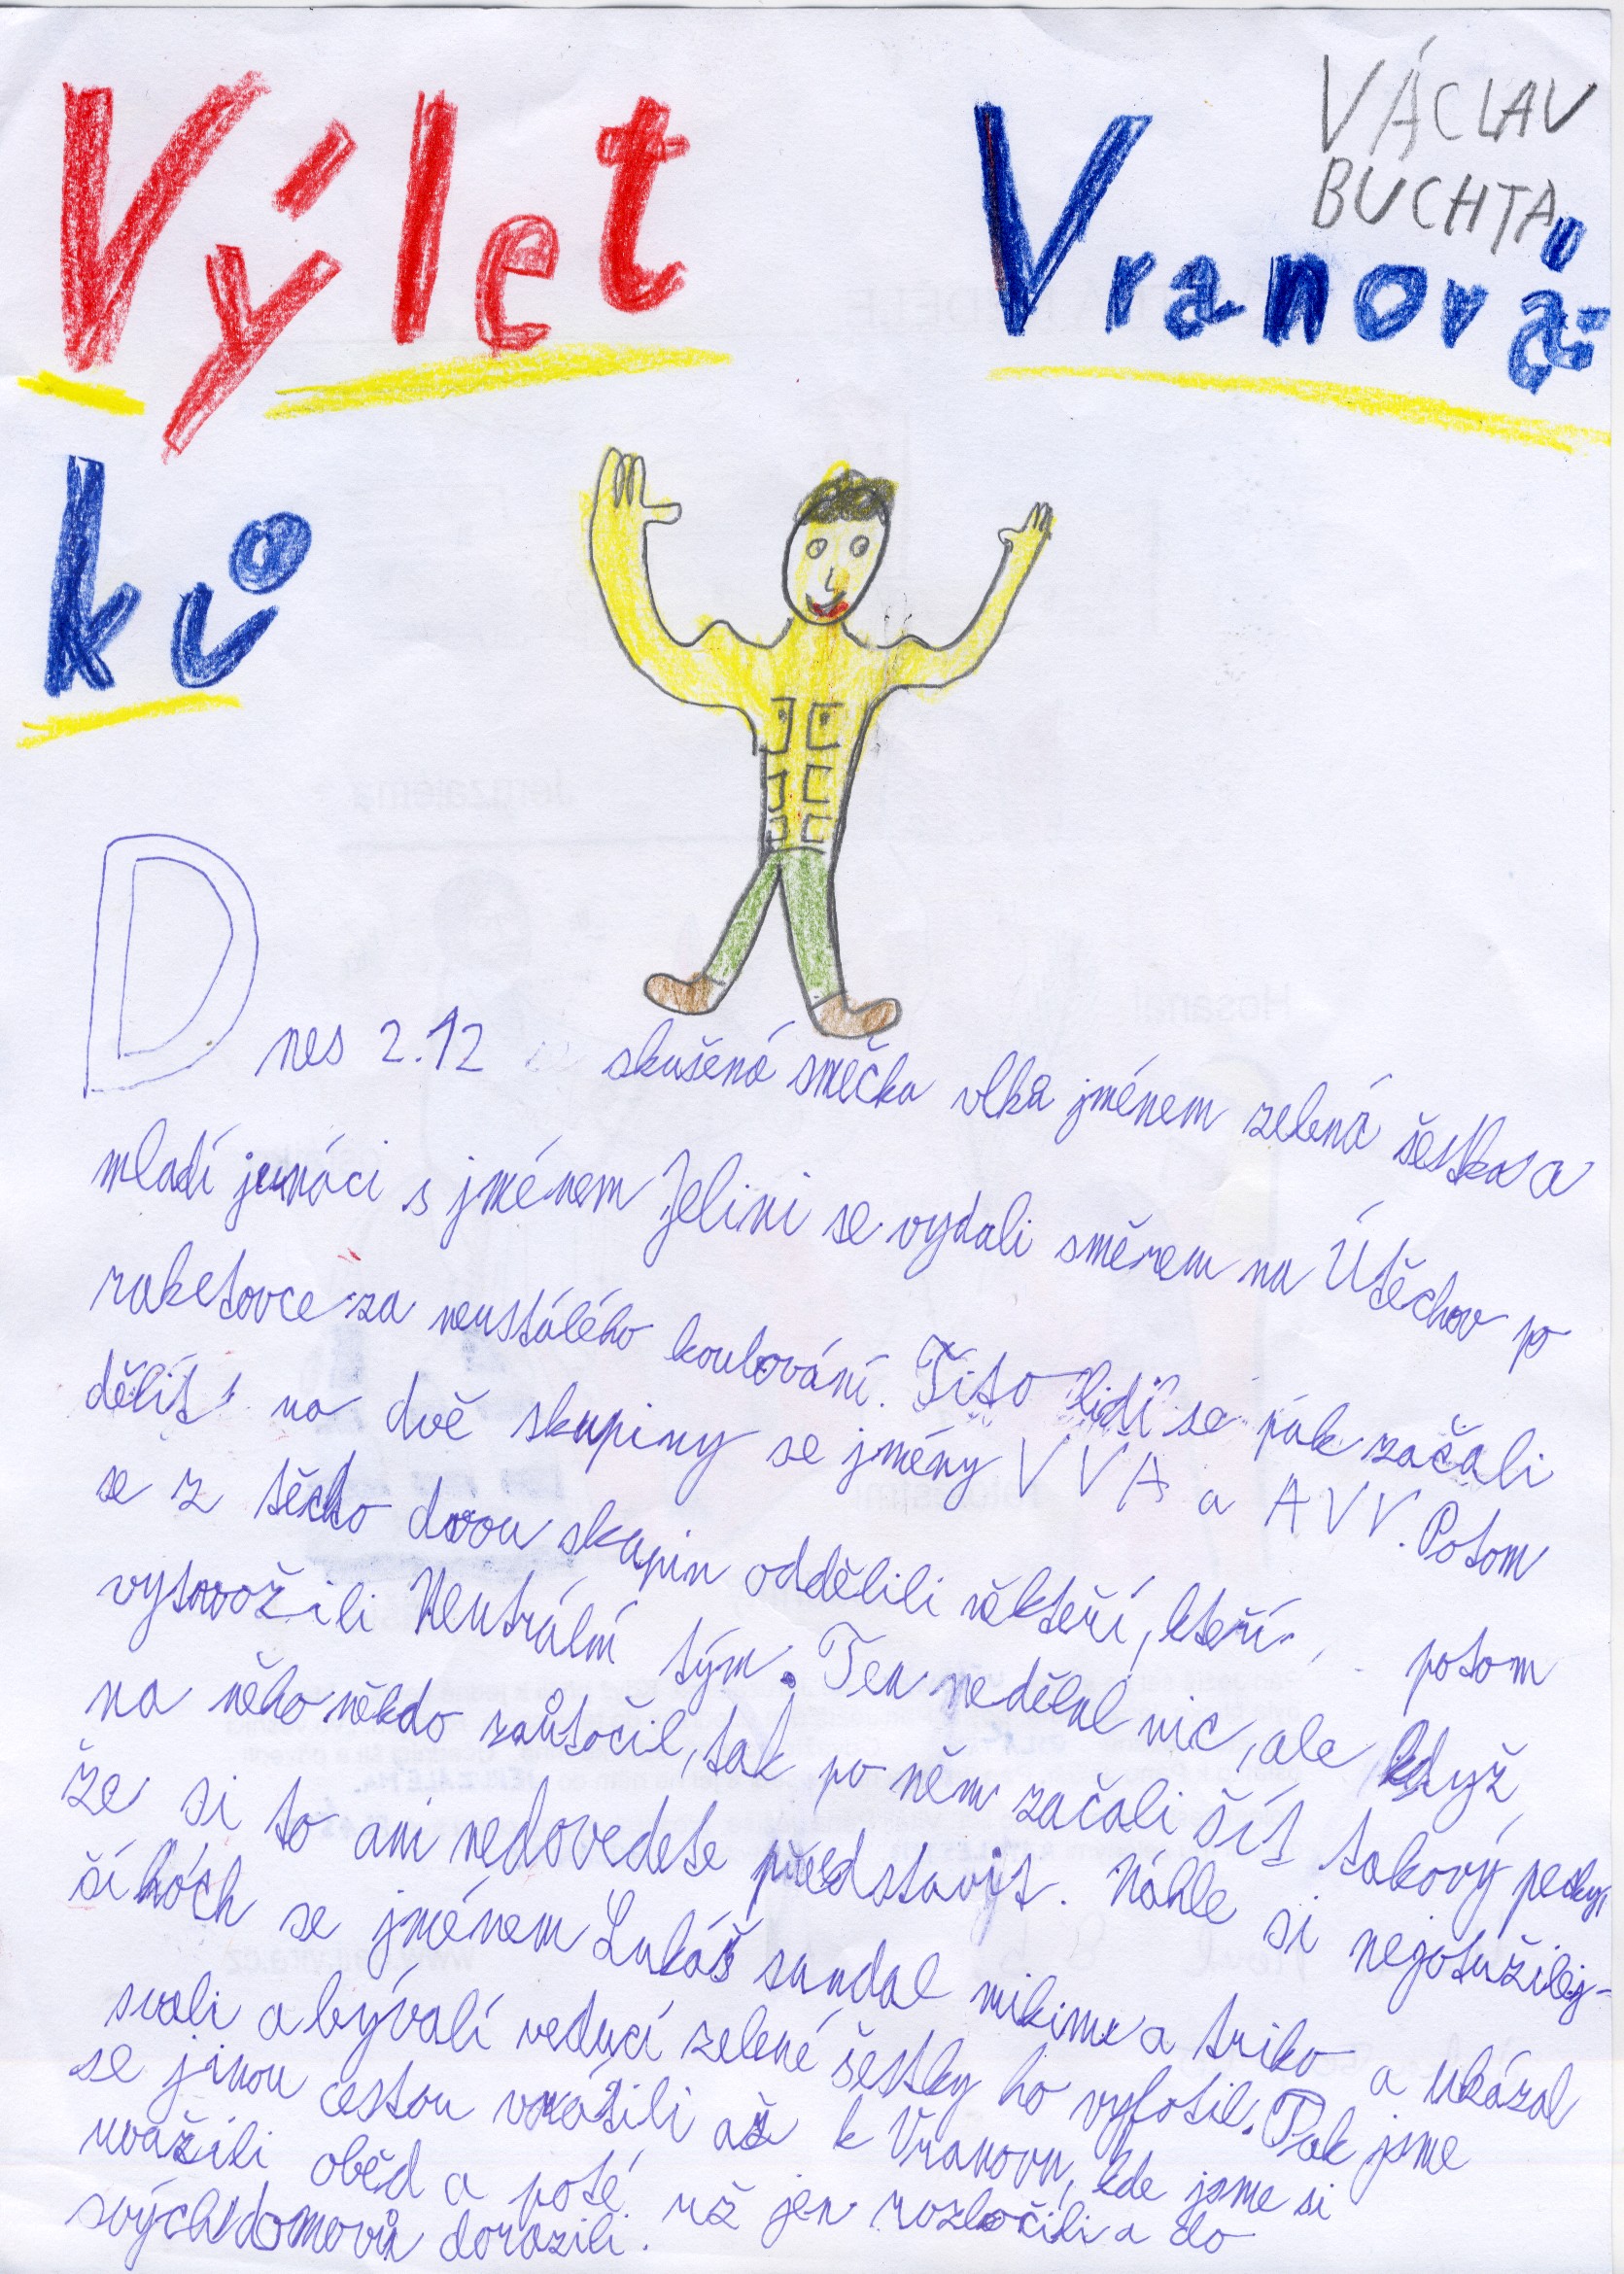 VÁCLAV
BUCHTA
Výlet Vranováč
ků
Dnes 2.12 skušená smečka vlka jménem zelená šestka a
mladí junáci s jménem Jelini se vydali směrem na Útěchov po
raketovce za neustálého koulování. Tito lidi se pak začali
dělit na dvě skupiny se jmény VVA a AVV. Potom
se z těchto dvou skupin oddělili někteří, kteří potom
vytvořili Neutrální tým. Ten nedělal nic, ale když
na něho někdo zaůtočil, tak po něm začali šít takový pecky,
že si to ani nedovedete představit. Náhle si nejotužilej-
ší hóch se jménem Lukáš sundal mikinu a triko a ukázal
svali a bývalí veducí zelené šestky ho vyfotil. Pak jsme
se jinou cestou vrátili až k Vranovu, kde jsme si
uvařili oběd a poté už jen rozločili a do
svých domovů dorazili.